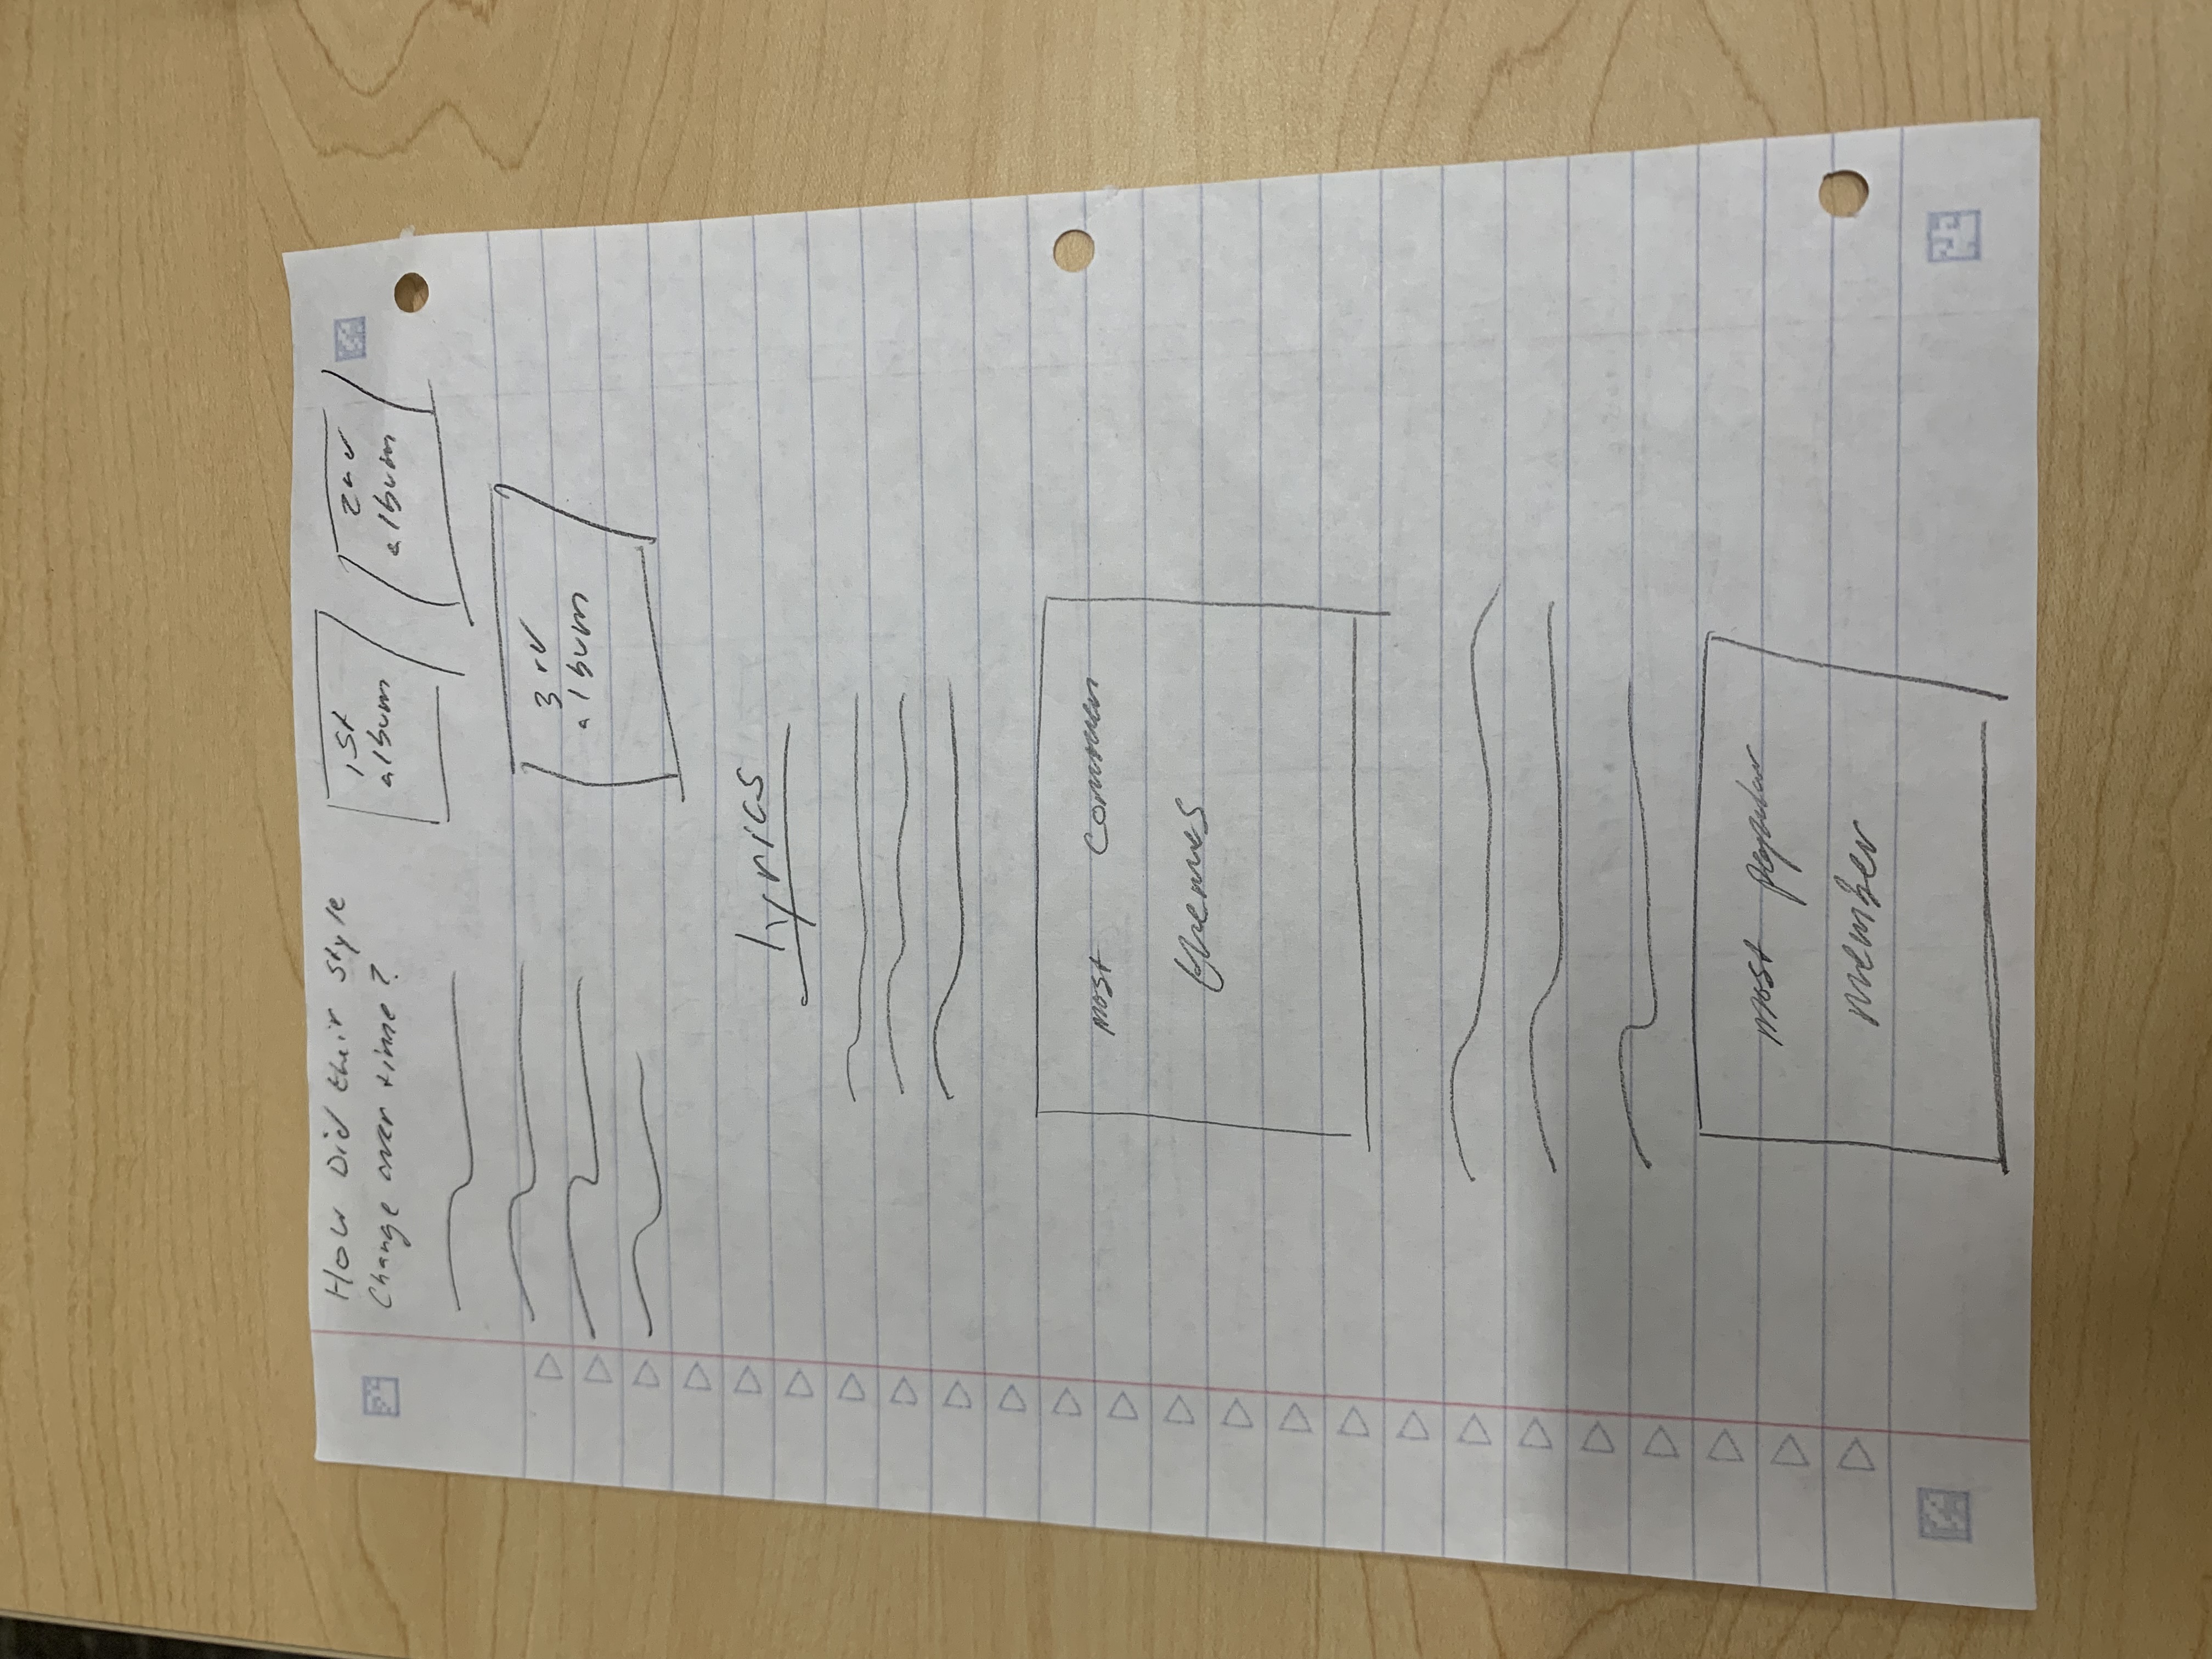 How Did their style
Change over time?
1st
album
2nd
album
3rd
album
lyrics
most common
themes
most popular
member